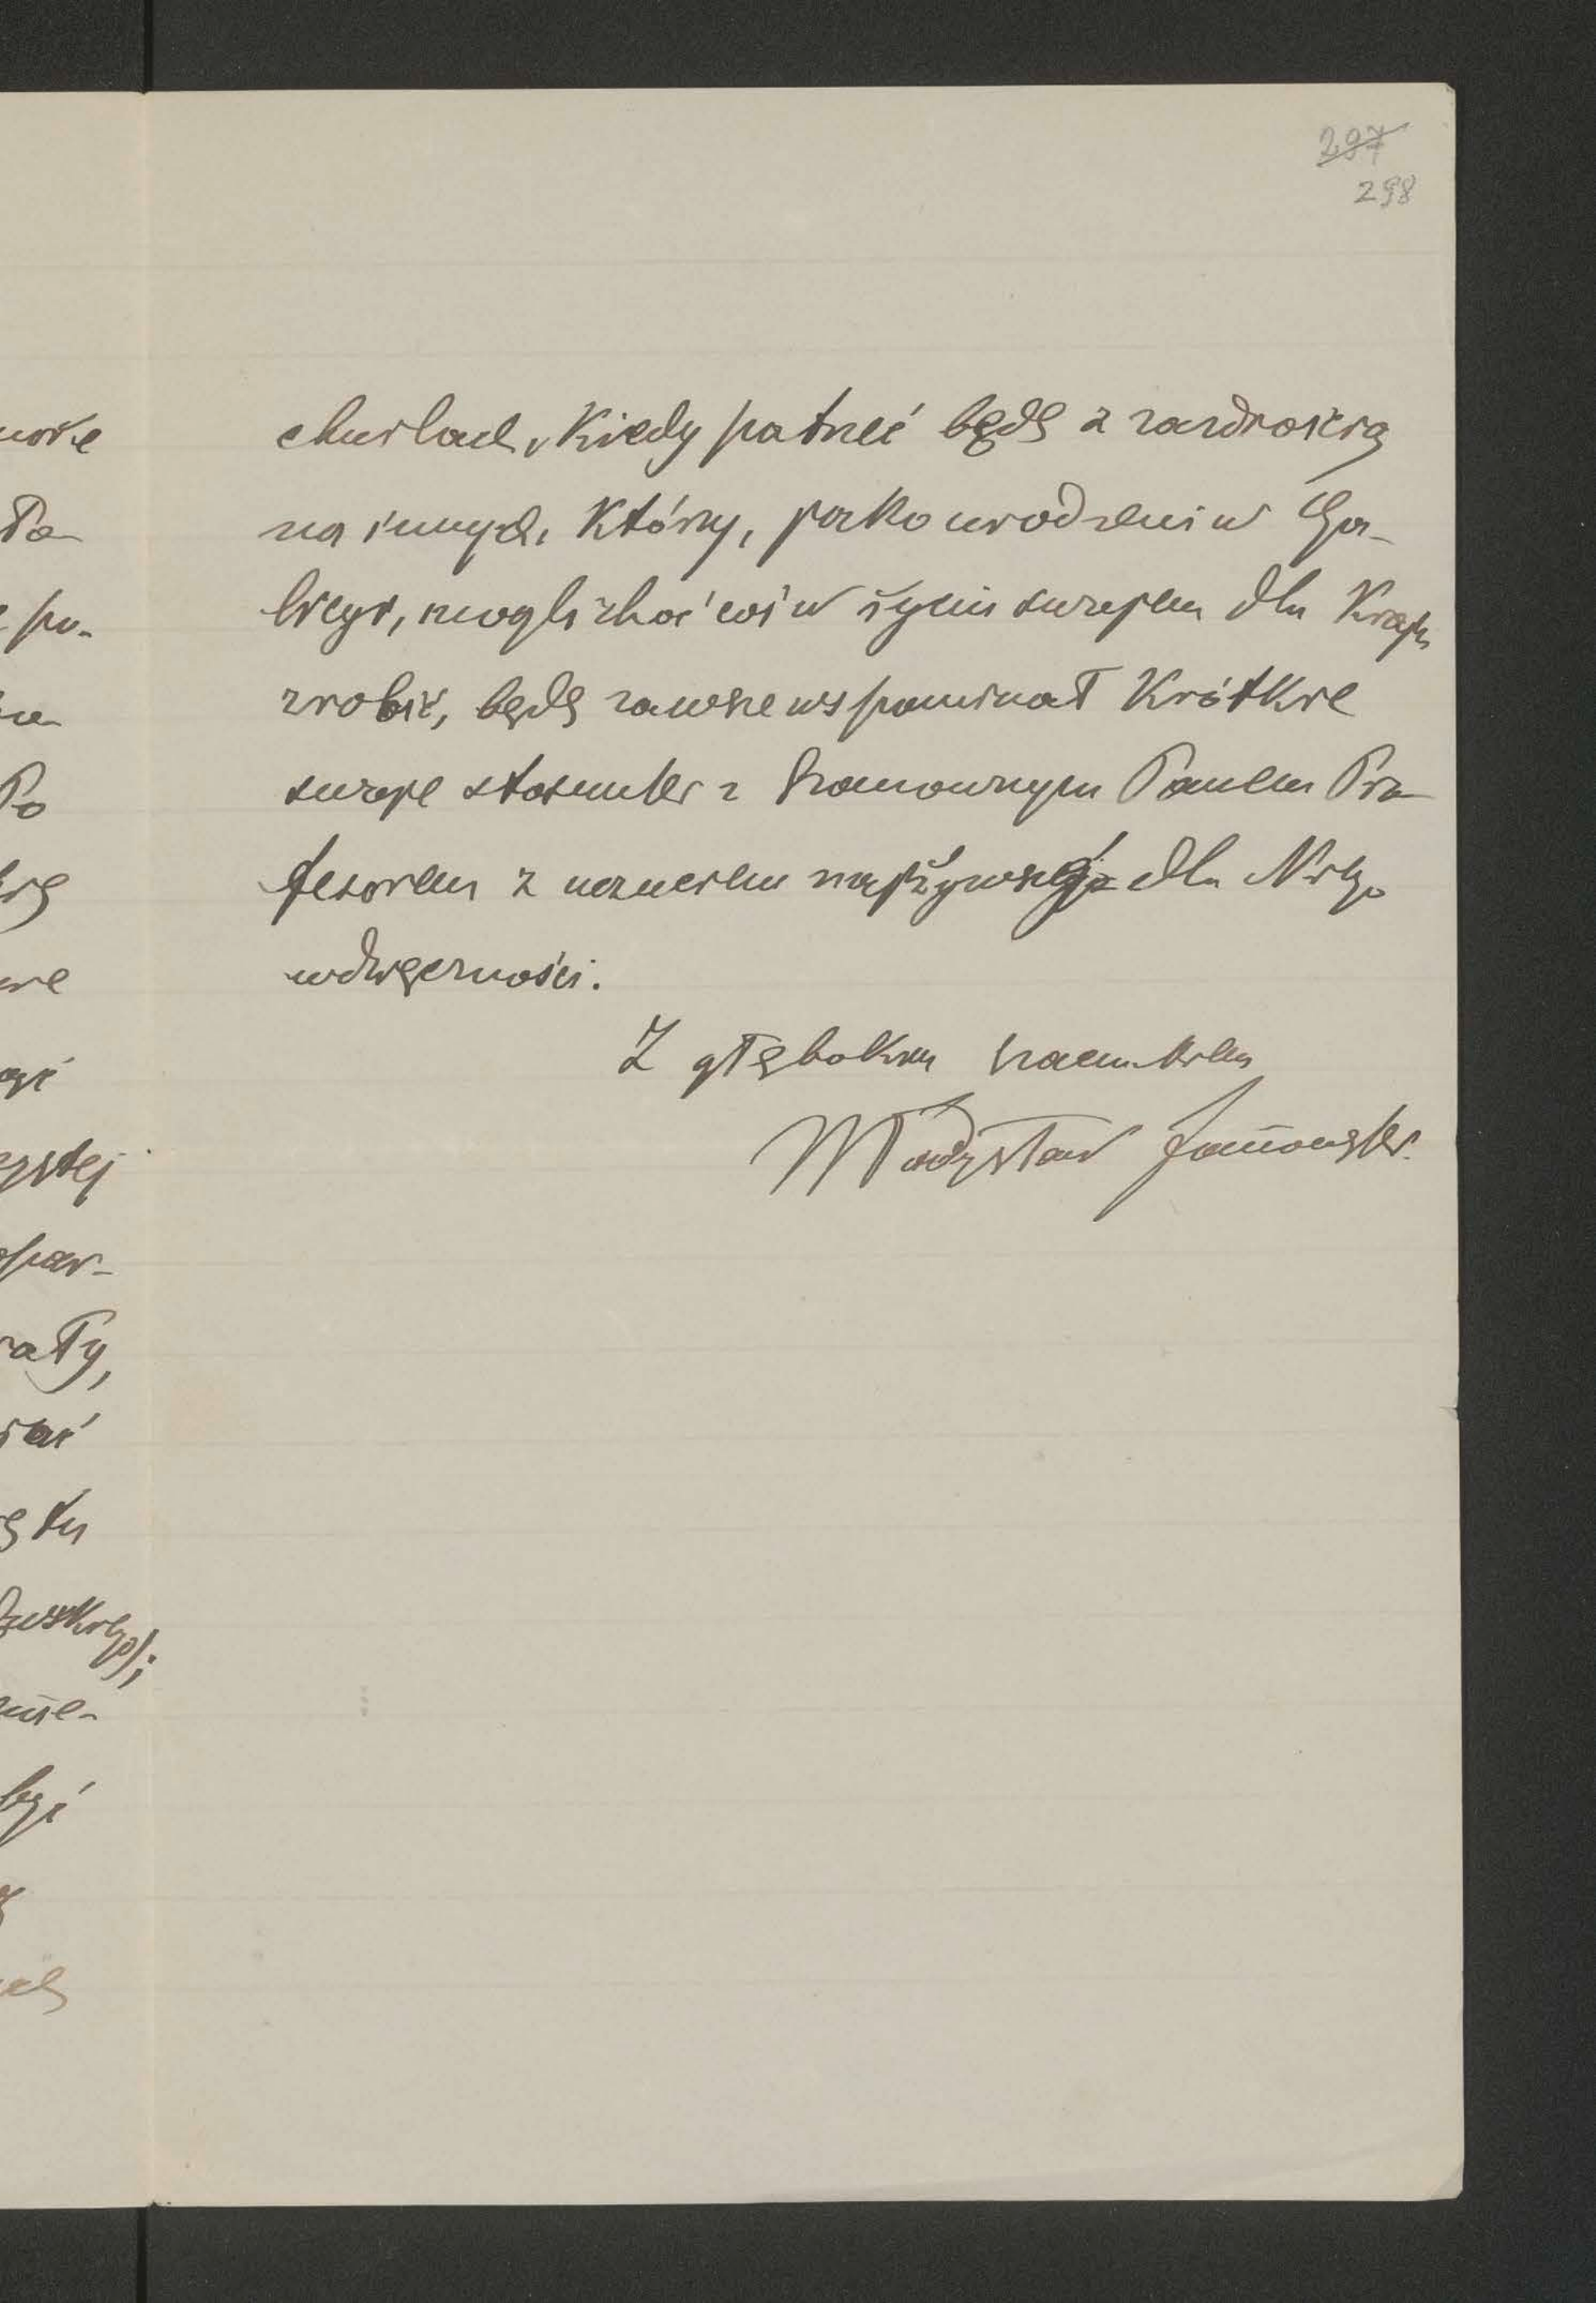 297
298
chwilach, kiedy patrzeć będę z zazdrością
na innych, którzy, jako urodzeni w Ga-
licyi, mogli choć coś w życiu swojem dla kraju
zrobić, będę zawsze wspominał krótkie
swoje stosunki z Szanownym Panem Pro-
fesorem z uczuciem najżywszej dla Niego
wdzięczności.
Z głębokim szacunkiem
Władysław Janowski.